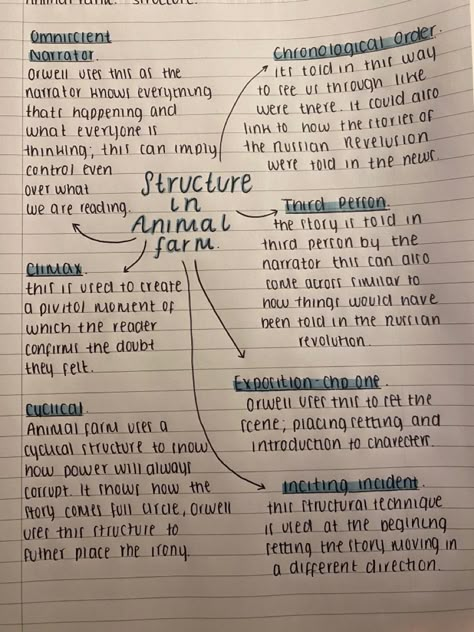 Animal farm: structure.
Omniscient
Narrator.
Orwell uses this as the
narrator knows everything
thats happening and
what everyone is
thinking; this can imply
control even
over what
we are reading.
Chronological Order.
its told in this way
to see us through like
were there. it could also
link to how the stories of
the Russian Revelusion
were told in the news.
Structure
in
Animal
farm.
Third Person.
the story is told in
third person by the
narrator this can also
come across similar to
how things would have
been told in the russian
revolution.
Climax.
this is used to create
a pivitol moment of
which the reader
confirms the doubt
they felt.
Exposition-chp one.
Orwell uses this to set the
scene; placing setting and
introduction to characters.
Cyclical.
Animal farm uses a
cyclical structure to show
how power will always
corrupt. It shows how the
story comes full circle, Orwell
uses this structure to
futher place the irony.
Inciting incident.
this structural technique
is used at the begining
setting the story moving in
a different direction.